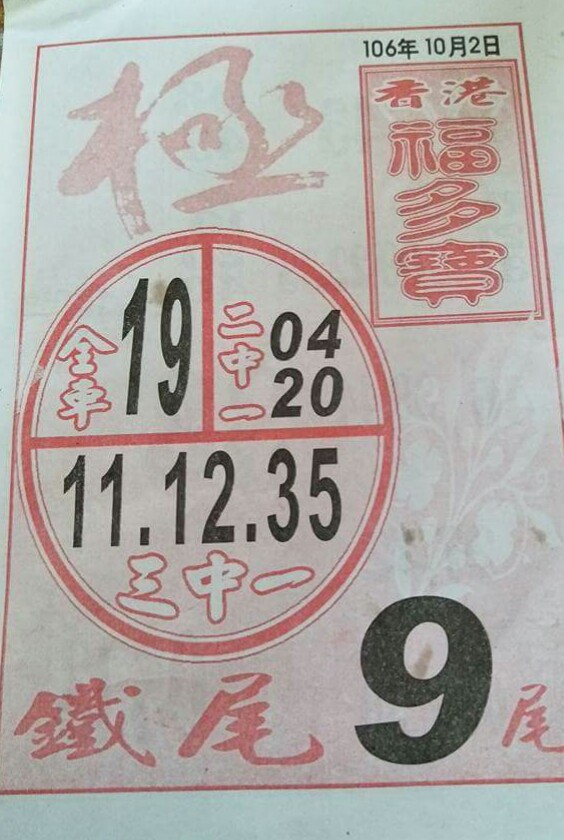 106年10月2日
極
香港
福多寶
全車
19
二中一
04
20
11.12.35
三中一
鐵尾
9
尾